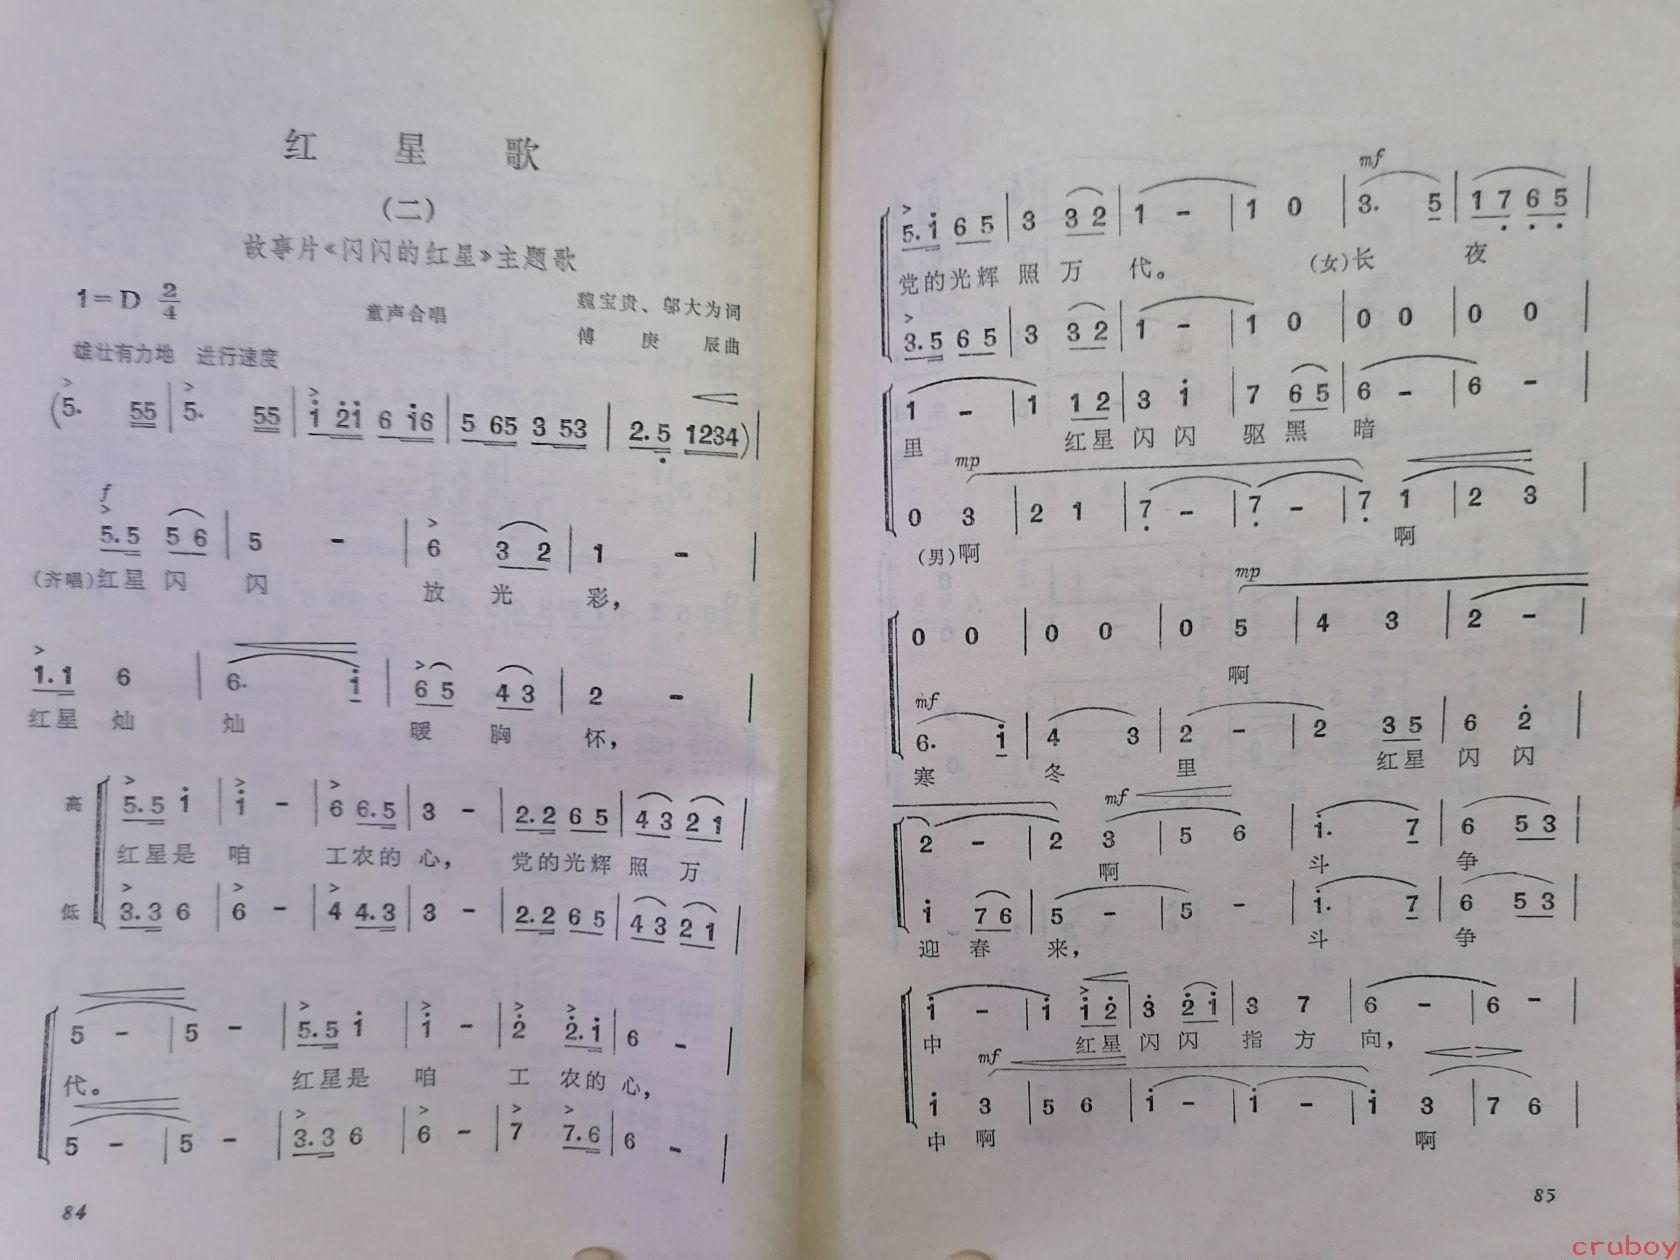 红 星 歌
(二)
故事片《闪闪的红星》主题歌
1=D 2/4
童声合唱
魏宝贵、邬大为词
傅 庚 辰曲
雄壮有力地 进行速度
(5. 55 | 5. 55 | i 2i 6 i6 | 5 65 3 53 | 2.5 1234) |
f
5.5 5 6 | 5 - | 6 3 2 | 1 - |
(齐唱)红星 闪 闪 放 光 彩,
1.1 6 | 6. i | 6 5 4 3 | 2 - |
红星 灿 灿 暖 胸 怀,
高 5.5 i | i - | 6 6.5 | 3 - | 2.2 6 5 | 4 3 2 1 |
红星是 咱 工农的 心, 党的光辉 照 万
低 3.3 6 | 6 - | 4 4.3 | 3 - | 2.2 6 5 | 4 3 2 1 |
5 - | 5 - | 5.5 i | i - | 2 2.i | 6 - |
代。 红星是 咱 工 农的 心,
5 - | 5 - | 3.3 6 | 6 - | 7 7.6 | 6 - |
84
mf
5.i 6 5 | 3 3 2 | 1 - | 1 0 | 3. 5 | 1 7 6 5 |
党的光辉 照 万 代。 (女)长 夜
3.5 6 5 | 3 3 2 | 1 - | 1 0 | 0 0 | 0 0 |
1 - | 1 1 2 | 3 i | 7 6 5 | 6 - | 6 - |
里 红星 闪 闪 驱 黑 暗
mp
0 3 | 2 1 | 7 - | 7 - | 7 1 | 2 3 |
(男)啊 啊
mp
0 0 | 0 0 | 0 5 | 4 3 | 2 - |
啊
mf
6. i | 4 3 | 2 - | 2 3 5 | 6 2 |
寒 冬 里 红星 闪 闪
mf
2 - | 2 3 | 5 6 | i. 7 | 6 5 3 |
啊 斗 争
i 7 6 | 5 - | 5 - | i. 7 | 6 5 3 |
迎 春 来, 斗 争
i - | i i 2 | 3 2 i | 3 7 | 6 - | 6 - |
中 红星 闪 闪 指 方 向,
mf
i 3 | 5 6 | i - | i - | i 3 | 7 6 |
中 啊 啊
85
cruboy